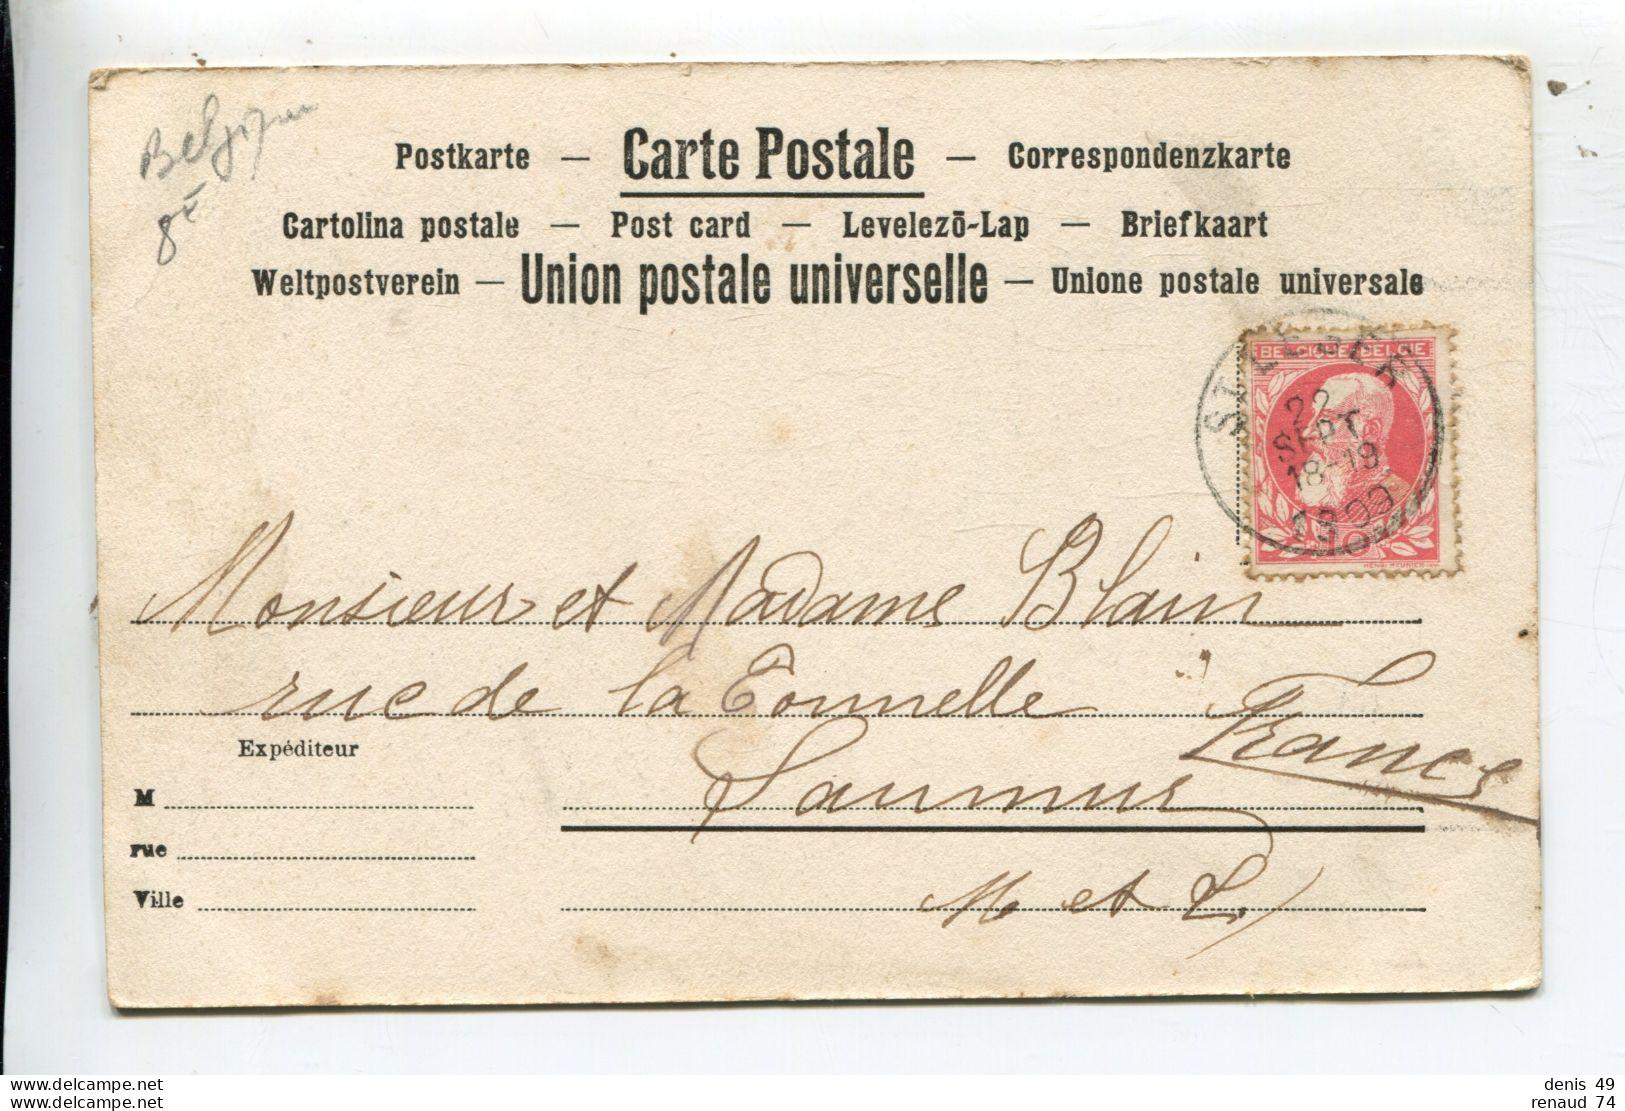 Belgique
8€
Postkarte — Carte Postale — Correspondenzkarte
Cartolina postale — Post card — Levelezō-Lap — Briefkaart
Weltpostverein — Union postale universelle — Unione postale universale
BELGIQUE BELGIË
ST LEGER
22
SEPT
18-19
10
HENRI MEUNIER
Monsieur et Madame Blain
rue de la Tonnelle
France
Saumur
M et L
Expéditeur
M
rue
Ville
www.delcampe.net
www.delcampe.com
denis 49
renaud 74